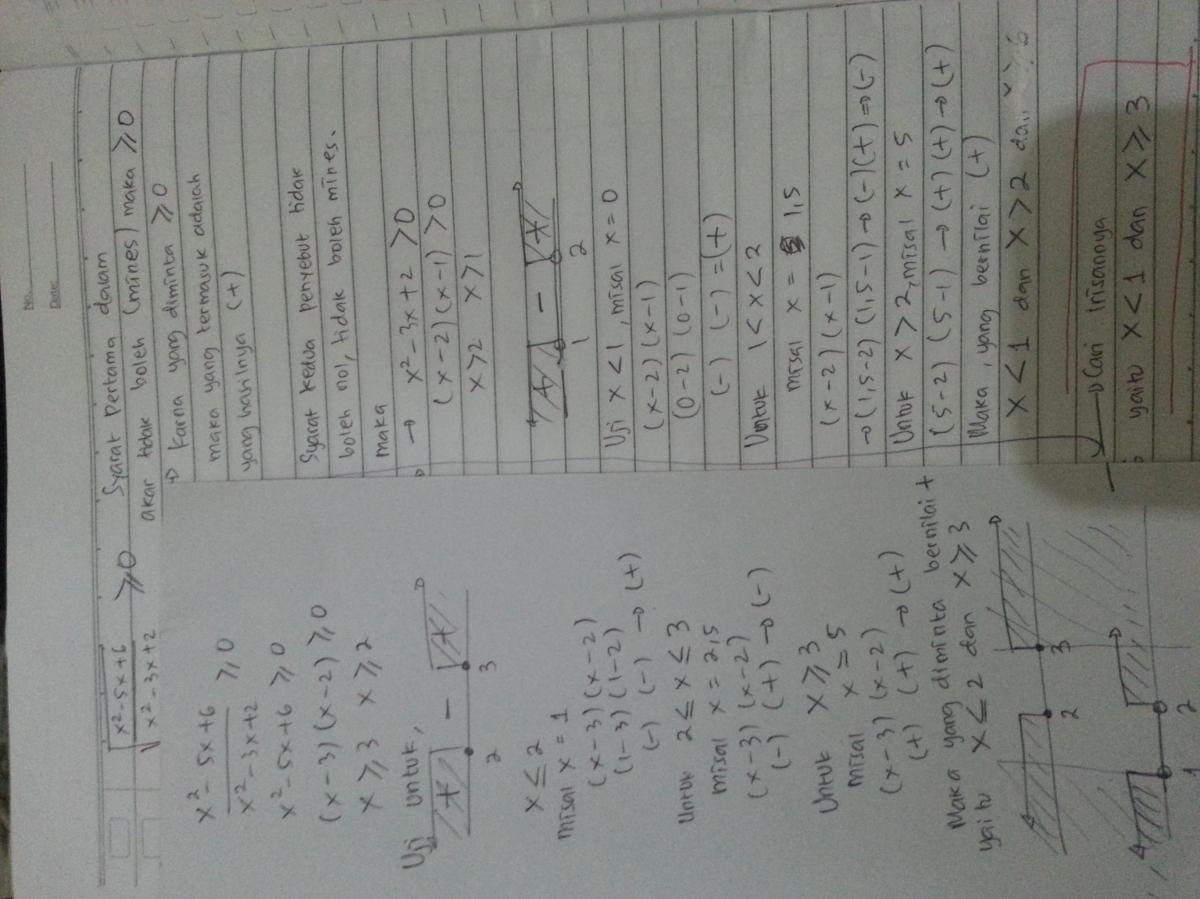 No.
Date:
√ x² - 5x + 6 / x² - 3x + 2 ⩾ 0
x² - 5x + 6 / x² - 3x + 2 ⩾ 0
x² - 5x + 6 ⩾ 0
(x - 3) (x - 2) ⩾ 0
x ⩾ 3 x ⩾ 2
Uji untuk,
+ - +
2 3
x ≤ 2
misal x = 1
(x - 3) (x - 2)
(1 - 3) (1 - 2)
(-) (-) → (+)
Untuk 2 ≤ x ≤ 3
misal x = 2,5
(x - 3) (x - 2)
(-) (+) → (-)
Untuk x ⩾ 3
misal x = 5
(x - 3) (x - 2)
(+) (+) → (+)
Maka yang diminta bernilai +
yaitu x ≤ 2 dan x ⩾ 3
2 3
1 2
Syarat Pertama dalam
akar tidak boleh (mines) maka ⩾ 0
→ karna yang diminta ⩾ 0
maka yang termasuk adalah
yang hasilnya (+)
Syarat kedua penyebut tidak
boleh nol, tidak boleh mines.
maka
→ x² - 3x + 2 > 0
(x - 2) (x - 1) > 0
x > 2 x > 1
+ - +
1 2
Uji x < 1, misal x = 0
(x - 2) (x - 1)
(0 - 2) (0 - 1)
(-) (-) = (+)
Untuk 1 < x < 2
misal x = 1,5
(x - 2) (x - 1)
→ (1,5 - 2) (1,5 - 1) → (-) (+) → (-)
Untuk x > 2, misal x = 5
(5 - 2) (5 - 1) → (+) (+) → (+)
Maka, yang bernilai (+)
x < 1 dan x > 2
→ Cari Irisannya
yaitu x < 1 dan x ⩾ 3